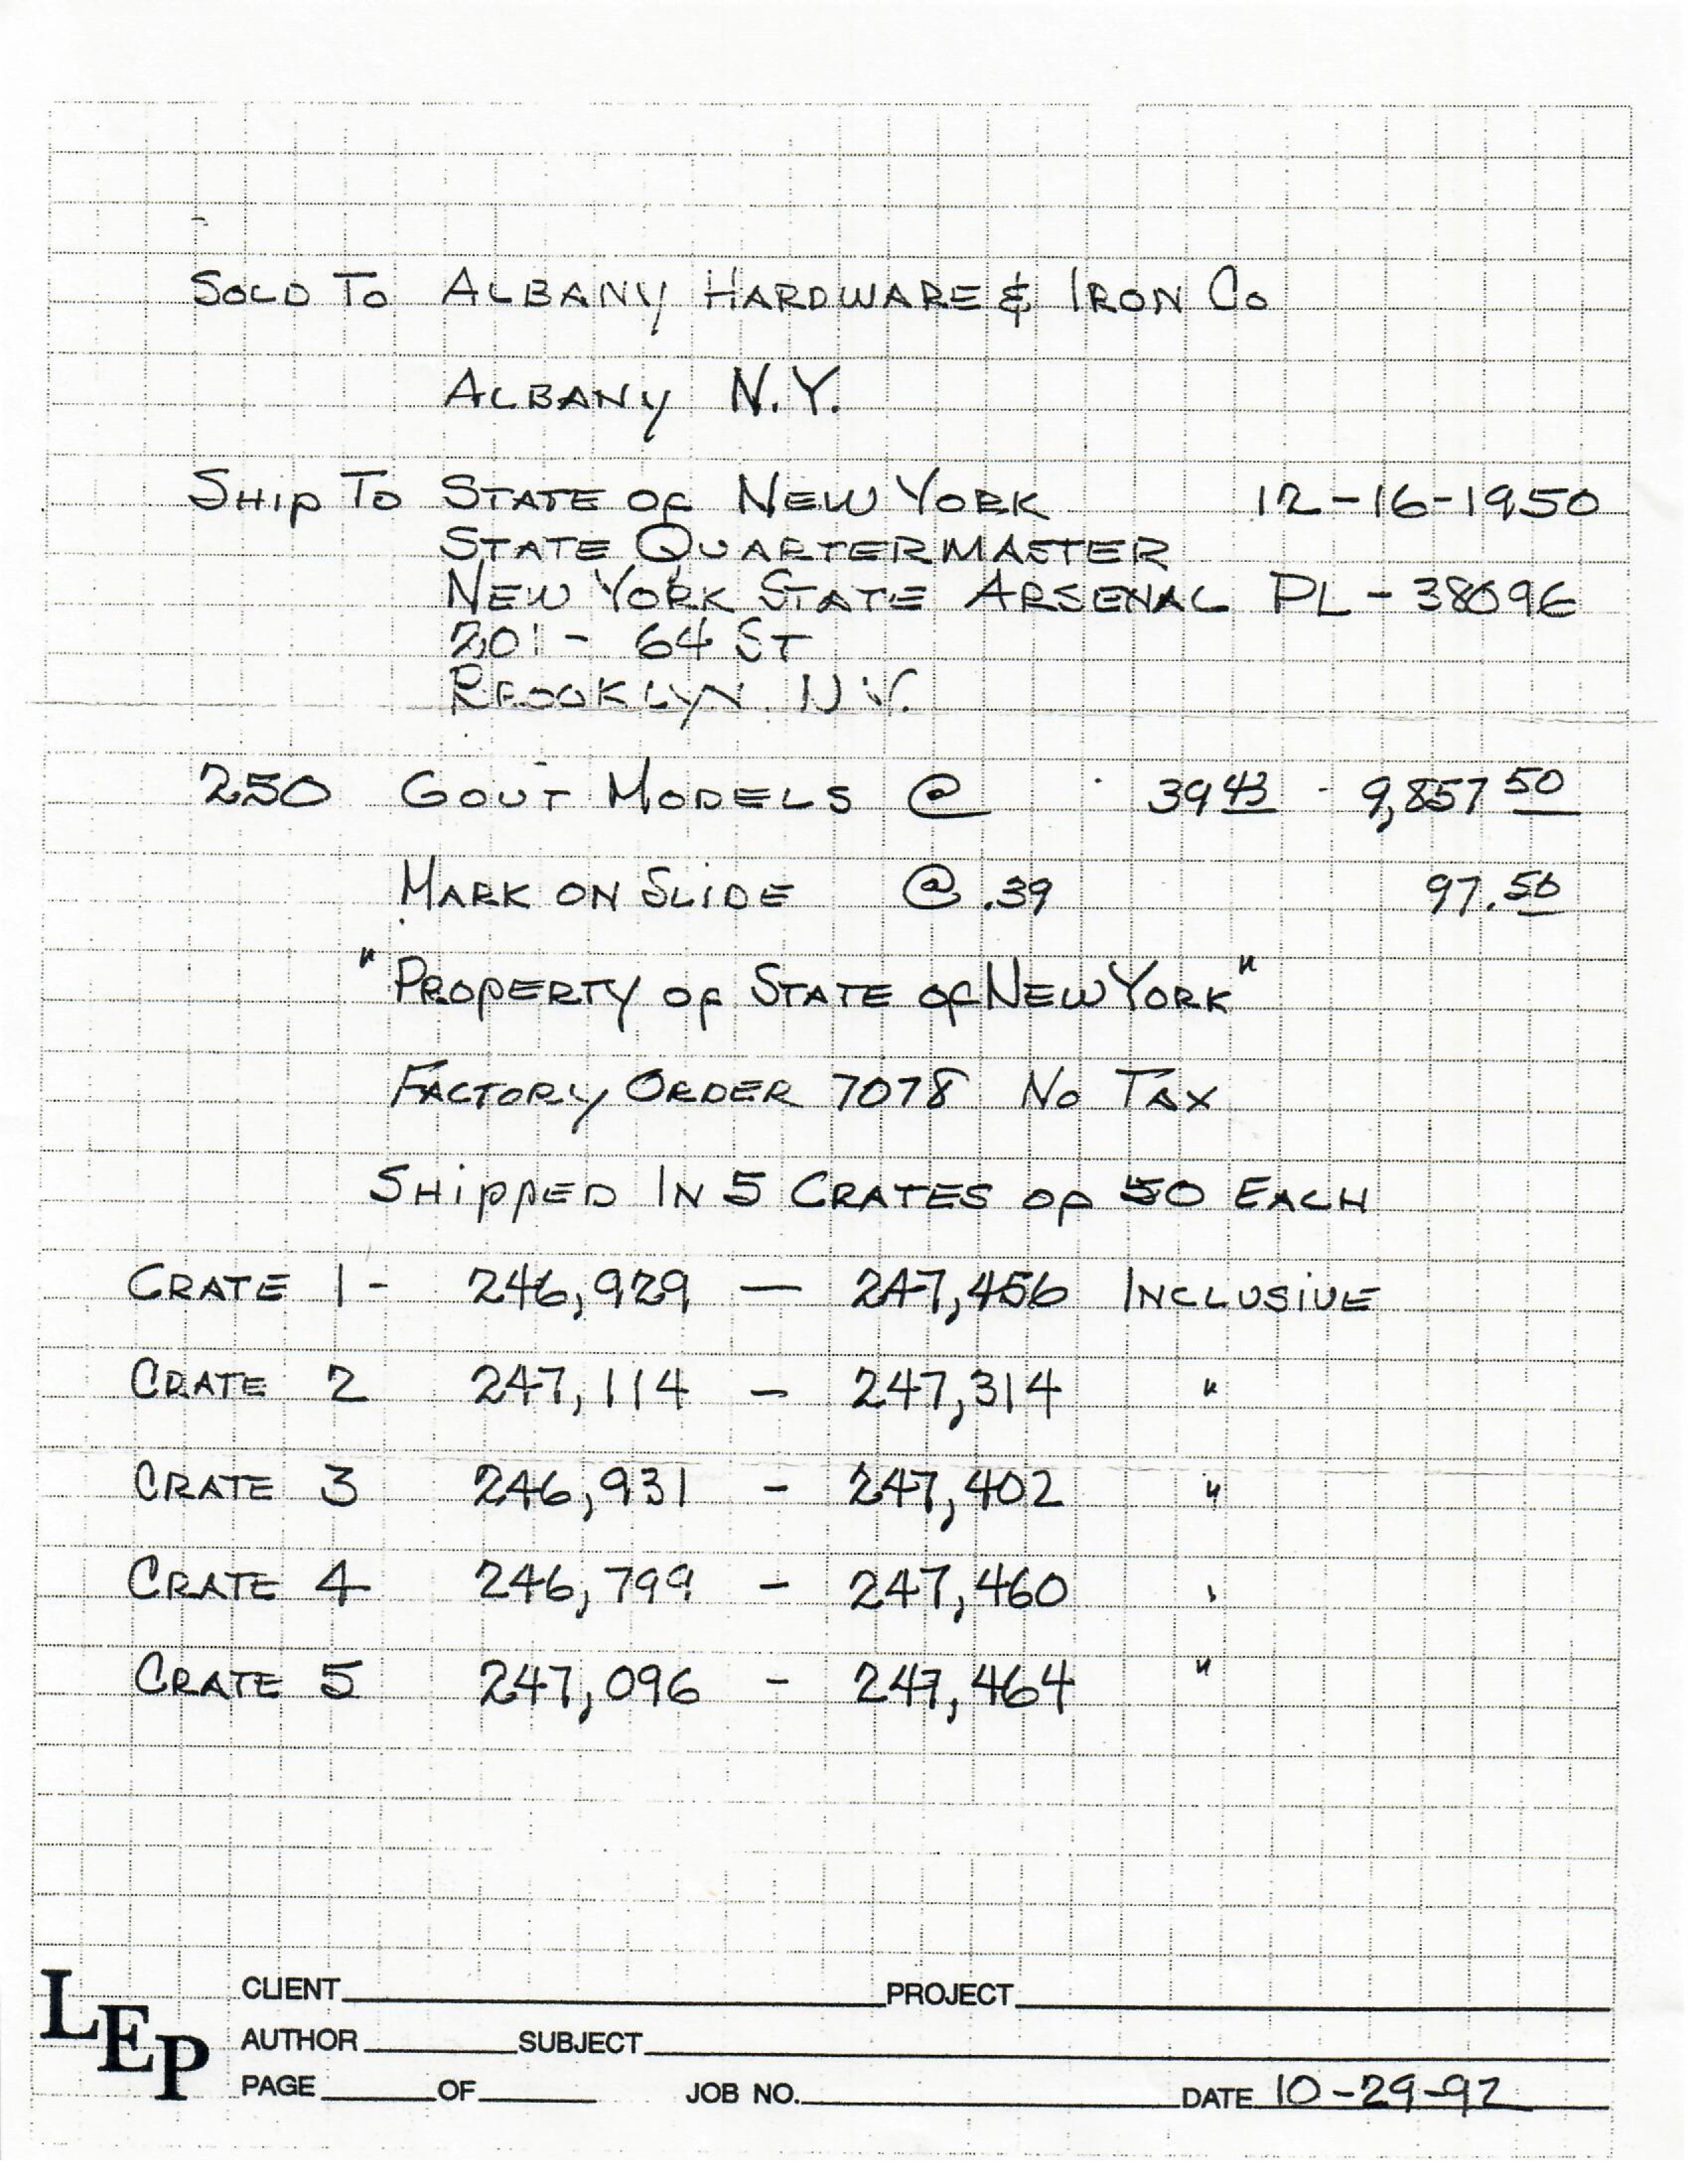 SOLD TO ALBANY HARDWARE & IRON CO
ALBANY N.Y.
SHIP TO STATE OF NEW YORK 12-16-1950
STATE QUARTERMASTER
NEW YORK STATE ARSENAL PL-38096
201 - 64 ST
BROOKLYN. N.Y.
250 GOVT MODELS @ 39 43 - 9,857 50
MARK ON SLIDE @ .39 97.50
"PROPERTY OF STATE OF NEW YORK"
FACTORY ORDER 7078 NO TAX
SHIPPED IN 5 CRATES OF 50 EACH
CRATE 1 - 246,929 — 247,456 INCLUSIVE
CRATE 2 247,114 - 247,314 "
CRATE 3 246,931 - 247,402 "
CRATE 4 246,799 - 247,460 "
CRATE 5 247,096 - 247,464 "
LEP
CLIENT PROJECT
AUTHOR SUBJECT
PAGE OF JOB NO. DATE 10-29-92